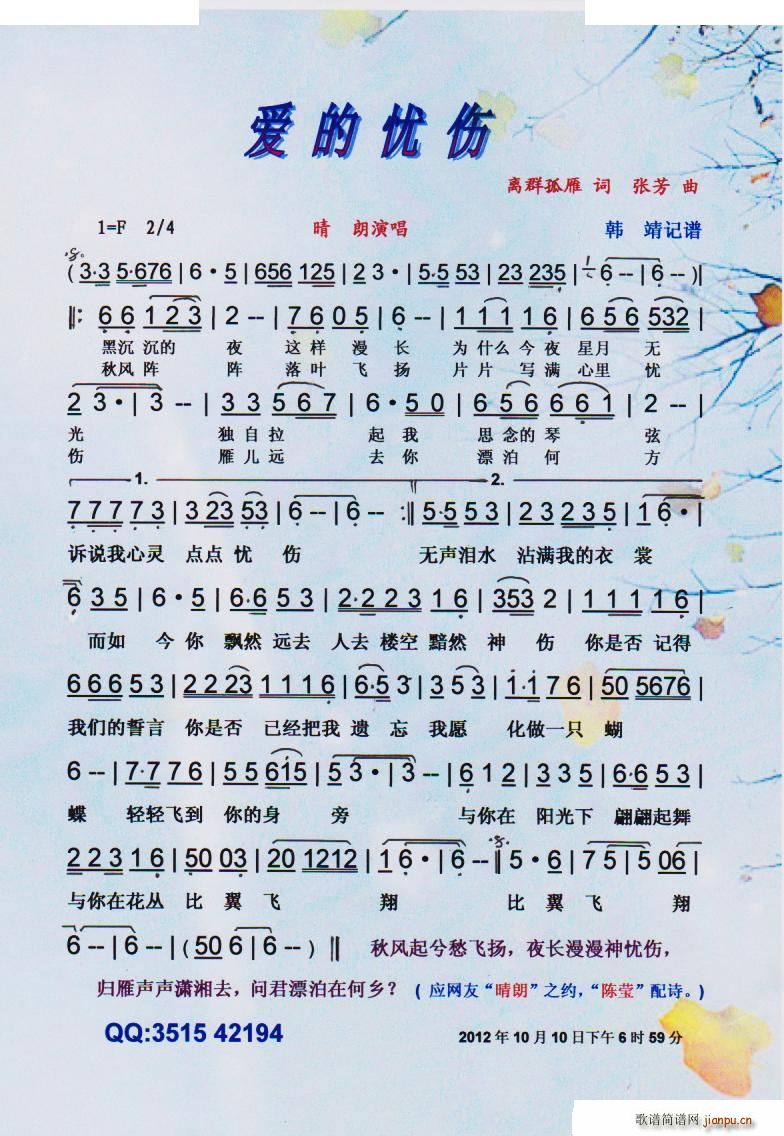 爱的忧伤
离群孤雁 词 张芳 曲
1=F 2/4 晴 朗演唱 韩 靖记谱
( 3·3 5·676 | 6·5 | 656 125 | 2 3· | 5·5 53 | 23 235 | 1 6 -- | 6 -- ) ||
||: 6 6 1 2 3 | 2 -- | 7 6 0 5 | 6 -- | 1 1 1 1 6 | 6 5 6 532 |
黑沉 沉的 夜 这样 漫 长 为 什么 今夜 星月 无
秋风 阵 阵 落叶 飞 扬 片 片 写满 心里 忧
2 3· | 3 -- | 3 3 5 6 7 | 6·5 0 | 6 5 6 6 6 1 | 2 -- |
光 独自拉 起我 思 念的 琴 弦
伤 雁儿远 去你 漂泊 何 方
1. 2.
7 7 7 7 3 | 3 23 53 | 6 -- | 6 -- :|| 5·5 5 3 | 2 3 2 3 5 | 1 6· |
诉说我心灵 点点 忧 伤 无声泪水 沾满我的衣 裳
6 3 5 | 6·5 | 6·6 5 3 | 2·2 2 3 1 6 | 353 2 | 1 1 1 1 6 |
而如 今你 飘然 远去 人去 楼空 黯然 神 伤 你是否 记得
6 6 6 5 3 | 2 2 23 1 1 1 6 | 6·5 3 | 3 5 3 | 1·1 7 6 | 50 5676 |
我们的誓言 你是否 已经把我 遗 忘 我愿 化做一只 蝴
6 -- | 7·7 7 6 | 5 5 615 | 5 3· | 3 -- | 6 1 2 | 3 3 5 | 6·6 5 3 |
蝶 轻轻飞到 你的身 旁 与你在 阳光下 翩翩起舞
2 2 3 1 6 | 50 03 | 20 1212 | 1 6· | 6 -- || 5·6 | 7 5 | 5 06 |
与你在花丛 比 翼 飞 翔 比 翼 飞 翔
6 -- | 6 -- | ( 50 6 | 6 -- ) || 秋风起兮愁飞扬，夜长漫漫神忧伤，
归雁声声潇湘去，问君漂泊在何乡？ ( 应网友“晴朗”之约，“陈莹”配诗。)
QQ:3515 42194 2012 年 10 月 10 日下午 6 时 59 分
歌谱简谱网 jianpu.cn